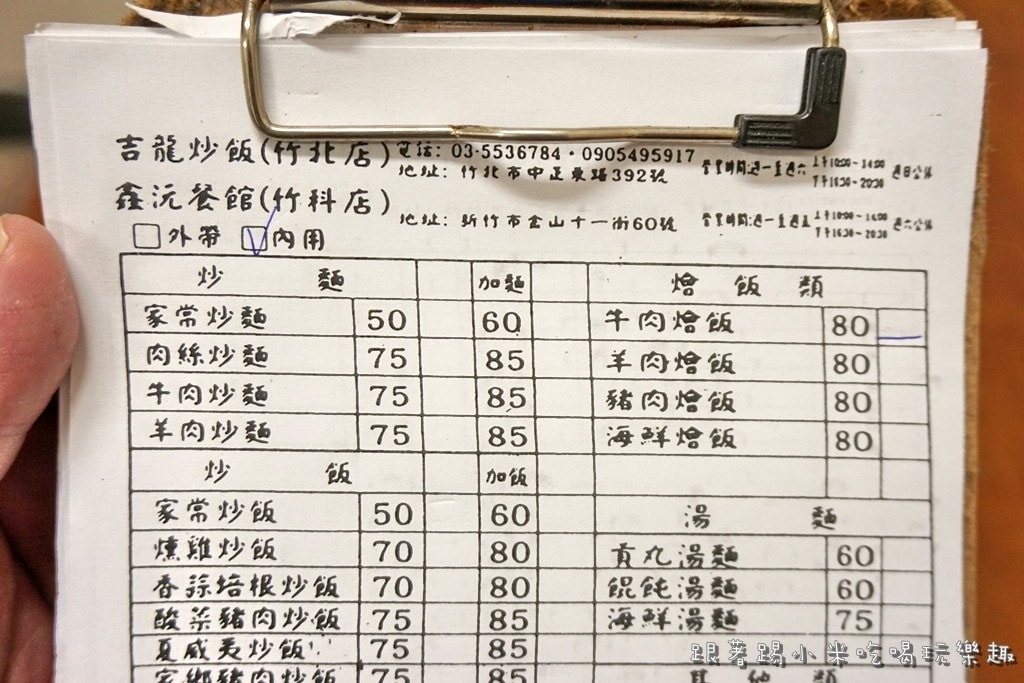 吉龍炒飯(竹北店) 電話: 03-5536784・0905495917
地址: 竹北市中正東路392號 營業時間:週一至週六 上午10:00~14:00 下午16:30~20:30 週日公休
鑫沅餐館(竹科店)
地址: 新竹市金山十一街60號 營業時間:週一至週五 上午10:00~14:00 下午16:30~20:30 週六公休
外帶 內用
炒 麵 加麵 燴飯類
家常炒麵 50 60 牛肉燴飯 80
肉絲炒麵 75 85 羊肉燴飯 80
牛肉炒麵 75 85 豬肉燴飯 80
羊肉炒麵 75 85 海鮮燴飯 80
炒 飯 加飯
家常炒飯 50 60 湯 麵
燻雞炒飯 70 80 貢丸湯麵 60
香蒜培根炒飯 70 80 餛飩湯麵 60
酸菜豬肉炒飯 75 85 海鮮湯麵 75
夏威夷炒飯 75 85
家鄉豬肉炒飯 75 85 其他類
跟著踢小米吃喝玩樂趣